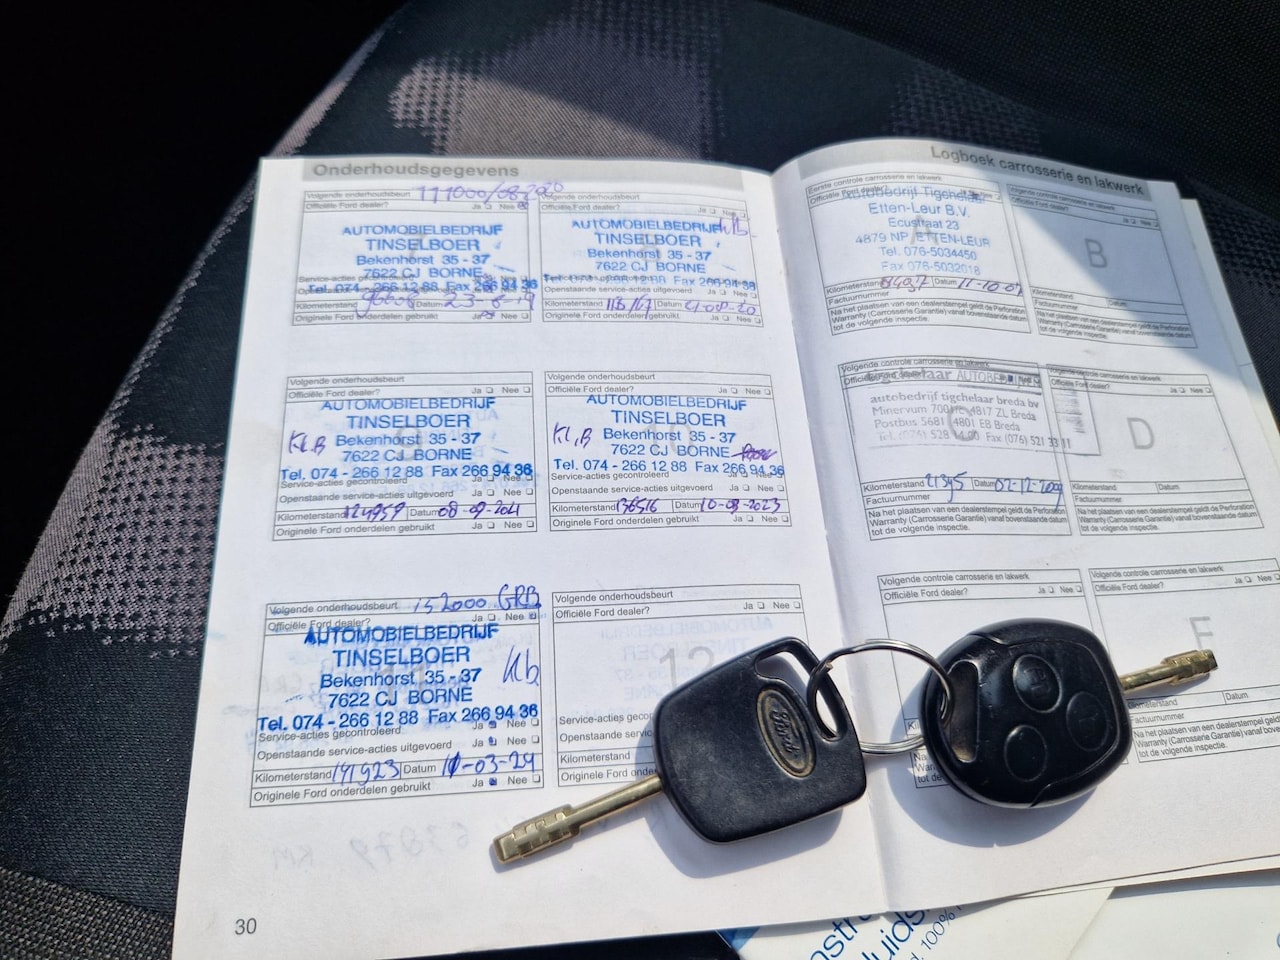 Onderhoudsgegevens
Volgende onderhoudsbeurt 111000/08-2020
Officiële Ford dealer? Ja Nee
AUTOMOBIELBEDRIJF
TINSELBOER
Bekenhorst 35 - 37
7622 CJ BORNE
Tel. 074 - 266 12 88 Fax 266 94 36
Kilometerstand Datum 23-8-19
Originele Ford onderdelen gebruikt Ja Nee
Ja Nee
AUTOMOBIELBEDRIJF
TINSELBOER
Bekenhorst 35 - 37
7622 CJ BORNE
Openstaande service-acties uitgevoerd Ja Nee
Kilometerstand Datum
Originele Ford onderdelen gebruikt Ja Nee
Volgende onderhoudsbeurt
Officiële Ford dealer? Ja Nee
AUTOMOBIELBEDRIJF
TINSELBOER
KLB Bekenhorst 35 - 37
7622 CJ BORNE
Tel. 074 - 266 12 88 Fax 266 94 36
Service-acties gecontroleerd
Openstaande service-acties uitgevoerd Ja Nee
Kilometerstand Datum
Originele Ford onderdelen gebruikt Ja Nee
Volgende onderhoudsbeurt
Officiële Ford dealer? Ja Nee
AUTOMOBIELBEDRIJF
TINSELBOER
KLB Bekenhorst 35 - 37
7622 CJ BORNE
Tel. 074 - 266 12 88 Fax 266 94 36
Service-acties gecontroleerd
Openstaande service-acties uitgevoerd Ja Nee
Kilometerstand 136516 Datum 10-08-2023
Originele Ford onderdelen gebruikt Ja Nee
Volgende onderhoudsbeurt 152000 GRB
Officiële Ford dealer? Ja Nee
AUTOMOBIELBEDRIJF
TINSELBOER
Bekenhorst 35 - 37 Klb
7622 CJ BORNE
Tel. 074 - 266 12 88 Fax 266 94 36
Service-acties gecontroleerd Ja Nee
Openstaande service-acties uitgevoerd Ja Nee
Kilometerstand 141923 Datum
Originele Ford onderdelen gebruikt Ja Nee
Volgende onderhoudsbeurt
Officiële Ford dealer? Ja Nee
12
Service-acties
Openstaande service
Kilometerstand
Originele Ford
30
Logboek carrosserie en lakwerk
Eerste controle carrosserie en lakwerk
Autobedrijf Tigchelaar
Etten-Leur B.V.
Ecustraat 23
4879 NP ETTEN-LEUR
Tel. 076-5034450
Fax 076-5032018
Kilometerstand Datum 11-10-07
Factuurnummer
Na het plaatsen van een dealerstempel geldt de Perforation
Warranty (Carrosserie Garantie) vanaf bovenstaande datum
tot de volgende inspectie.
Volgende controle carrosserie en lakwerk
Officiële Ford dealer? Ja Nee
B
Kilometerstand Datum
Factuurnummer
Na het plaatsen van een dealerstempel geldt de Perforation
Warranty (Carrosserie Garantie) vanaf bovenstaande datum
tot de volgende inspectie.
Volgende controle carrosserie en lakwerk
autobedrijf tigchelaar breda bv
Postbus 5681 4801 EB Breda
Kilometerstand 21395 Datum 02-12-2009
Factuurnummer
Na het plaatsen van een dealerstempel geldt de Perforation
Warranty (Carrosserie Garantie) vanaf bovenstaande datum
tot de volgende inspectie.
Ja Nee
D
Kilometerstand Datum
Factuurnummer
Na het plaatsen van een dealerstempel geldt de Perforation
Warranty (Carrosserie Garantie) vanaf bovenstaande datum
tot de volgende inspectie.
Volgende controle carrosserie en lakwerk
Officiële Ford dealer? Ja Nee
Volgende controle carrosserie en lakwerk
Officiële Ford dealer? Ja Nee
F
Datum
Factuurnummer
Na het plaatsen van een dealerstempel geldt de
Warranty (Carrosserie Garantie) vanaf
tot de volgende inspectie.
Ford
100%